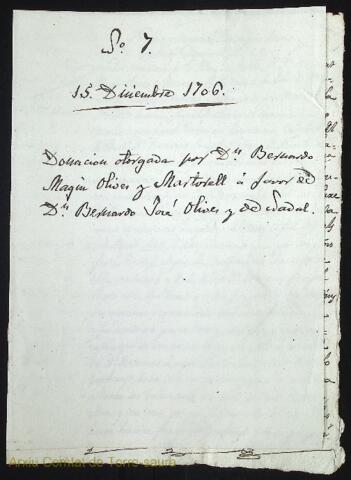 Sº. 7.
15. Diciembre 1706.
Donacion otorgada por Dn. Bernardo
Magin Olives y Martorell á favor de
Dn. Bernardo José Olives y de Nadal.
Arxiu Comtal de Torre-saura